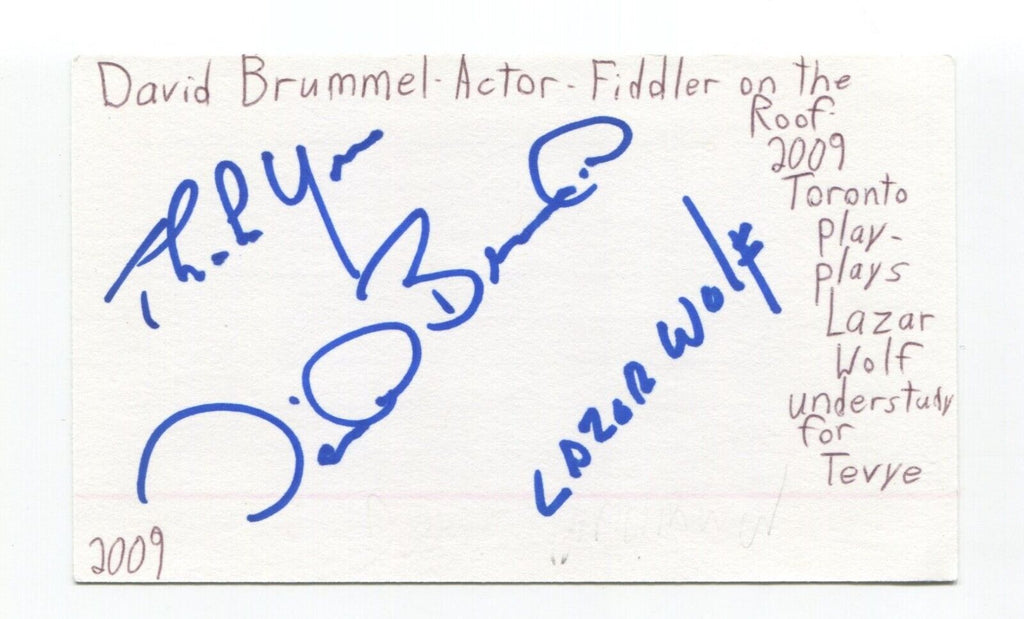 David Brummel - Actor - Fiddler on the
Roof.
2009
Toronto
play-
plays
Lazar
Wolf
understudy
for
Tevye
Thank You
David Brummel
Lazar Wolf
2009